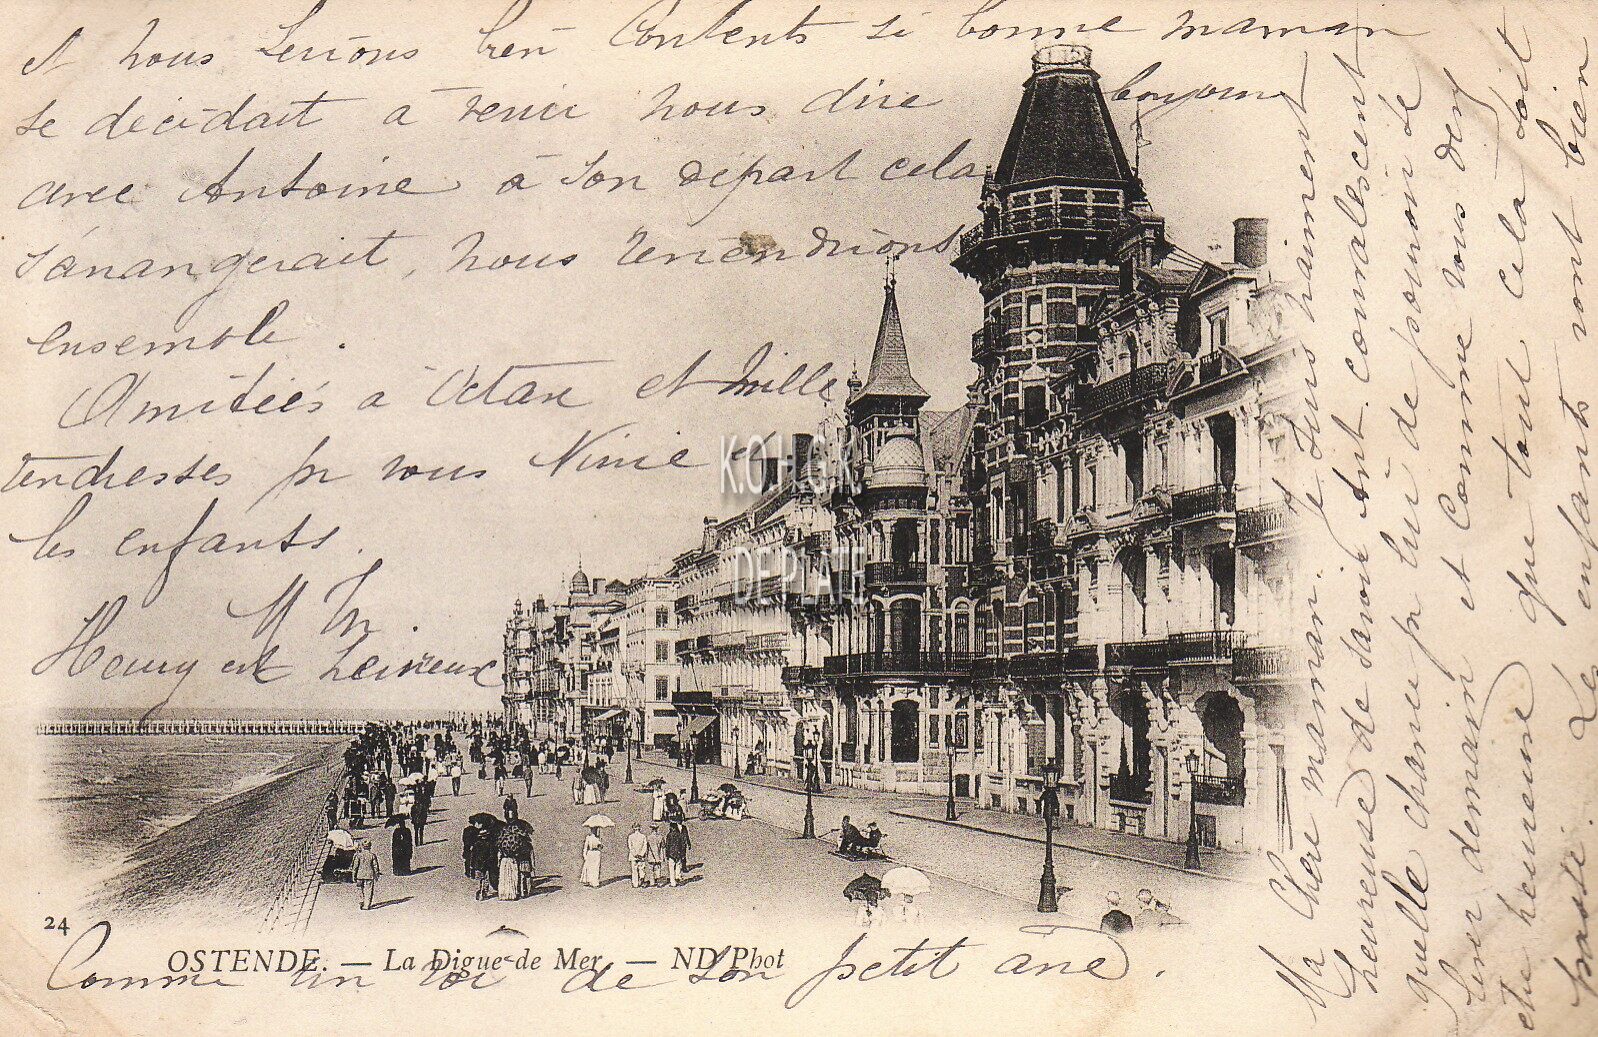 Ma chère maman. Je suis vraiment
heureuse de savoir Ant. convalescent
quelle chance pr lui de pouvoir se
lever demain et comme vous devez
être heureuse que tout cela soit
passé. Les enfants vont bien
et nous serions bien contents si bonne maman
se décidait à venir nous dire bonjour
avec Antoine à son départ cela
s'arrangerait, nous reviendrions
ensemble.
Amitiés à Octave et mille
tendresses pr vous Ninie et
les enfants.
K.O.H.G.K.
DE PLATE
24
OSTENDE. — La Digue de Mer. — ND Phot
Comme un roi de son petit âne.